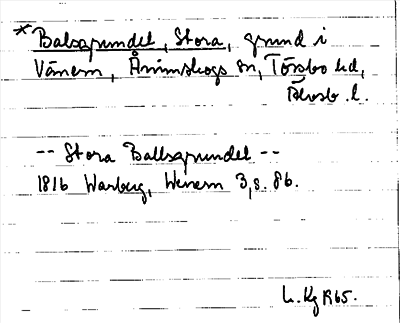 * Balsgrundet, Stora, grund i
Vänern, Ånimskogs sn, Tössbo hd,
Älvsb. l.
-- Stora Ballsgrundet --
1816 Warberg, Wenern 3, s. 86.
L. Kg 1965.